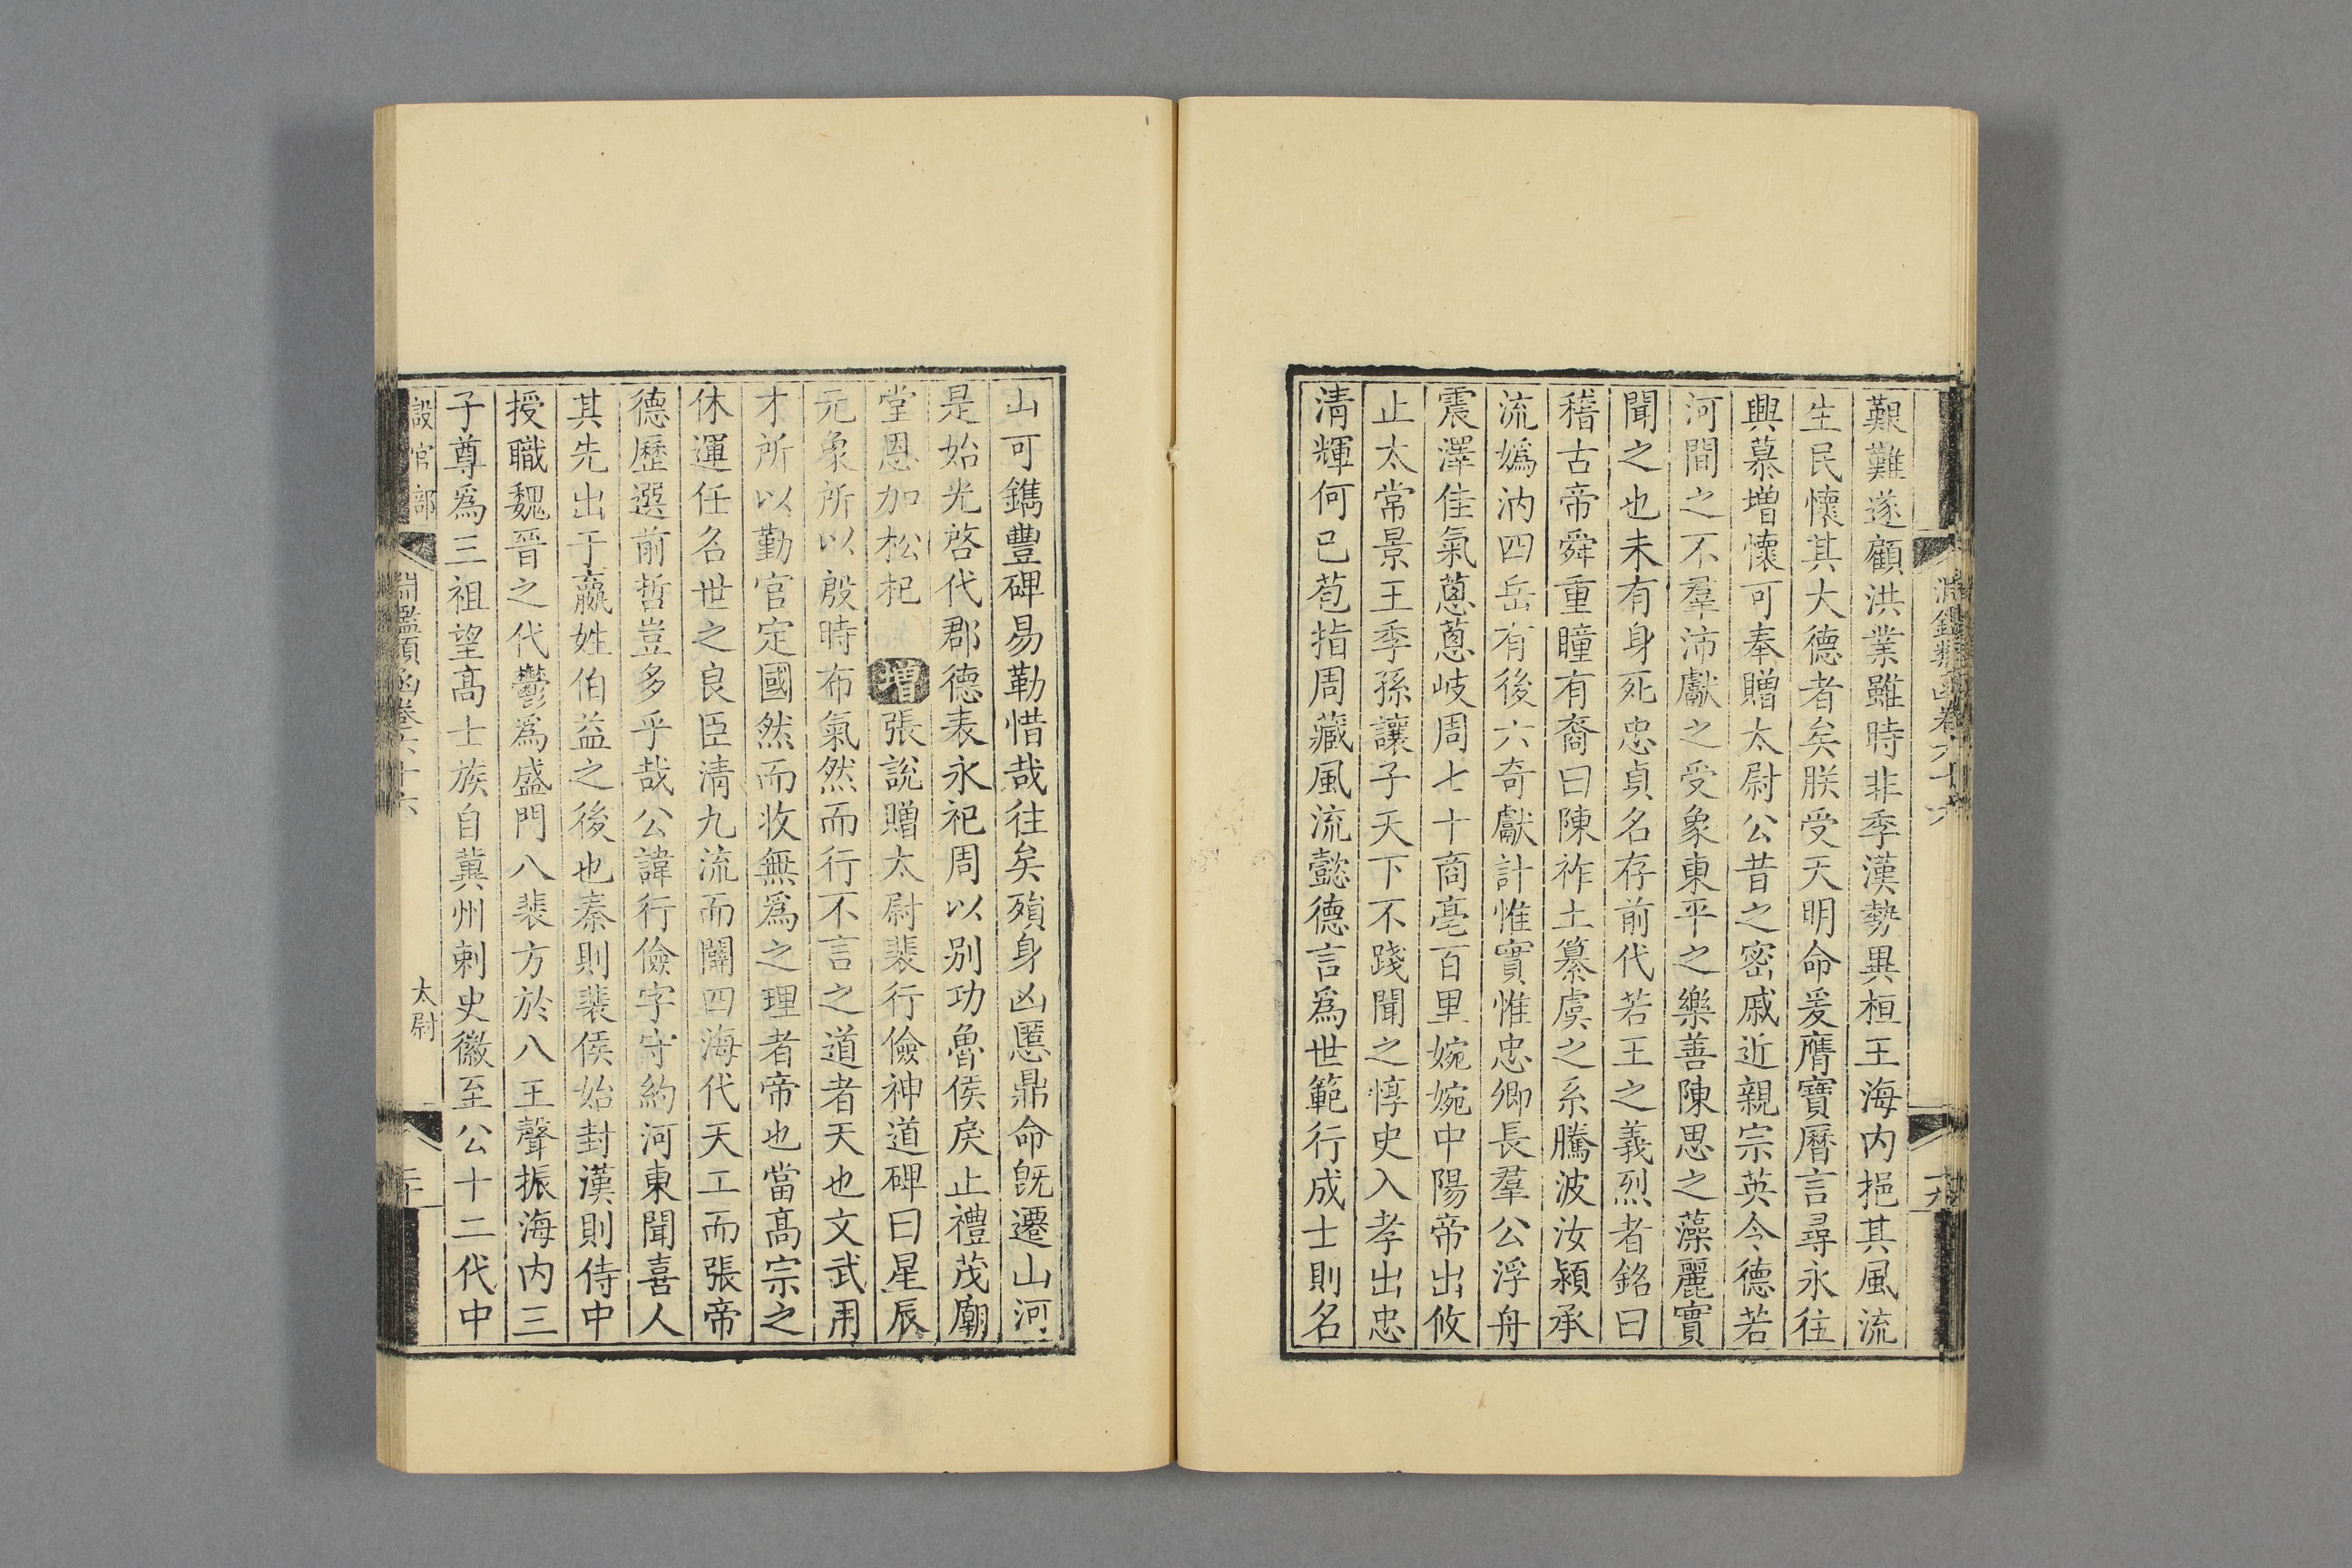 艱難遂顧洪業雖時非季漢勢異桓王海内挹其風流
生民懷其大德者矣朕受天明命爰膺寶曆言尋永往
興慕增懷可奉贈太尉公昔之密戚近親宗英令德若
河間之不羣沛獻之受象東平之樂善陳思之藻麗實
聞之也未有身死忠貞名存前代若王之義烈者銘曰
稽古帝舜重瞳有裔曰陳祚土纂虞之系騰波汝潁承
流嬀汭四岳有後六奇獻計惟實惟忠卿長羣公浮舟
震澤佳氣蔥蔥岐周七十商亳百里婉婉中陽帝出攸
止太常景王季孫讓子天下不踐聞之惇史入孝出忠
清輝何已苞指周藏風流懿德言爲世範行成士則名
山可鐫豐碑易勒惜哉往矣殞身凶慝鼎命旣遷山河
是始光啓代郡德表永祀周以别功魯侯戾止禮茂廟
堂恩加松杞 增張說贈太尉裴行儉神道碑曰星辰
元象所以殷時布氣然而行不言之道者天也文武用
才所以勤官定國然而收無爲之理者帝也當高宗之
休運任名世之良臣清九流而闢四海代天工而張帝
德歷選前哲豈多乎哉公諱行儉字守約河東聞喜人
其先出于嬴姓伯益之後也秦則裴侯始封漢則侍中
授職魏晉之代鬱爲盛門八裴方於八王聲振海内三
子尊爲三祖望高士族自冀州刺史徽至公十二代中
設官部 淵鑑類函卷六十六 太尉 二十